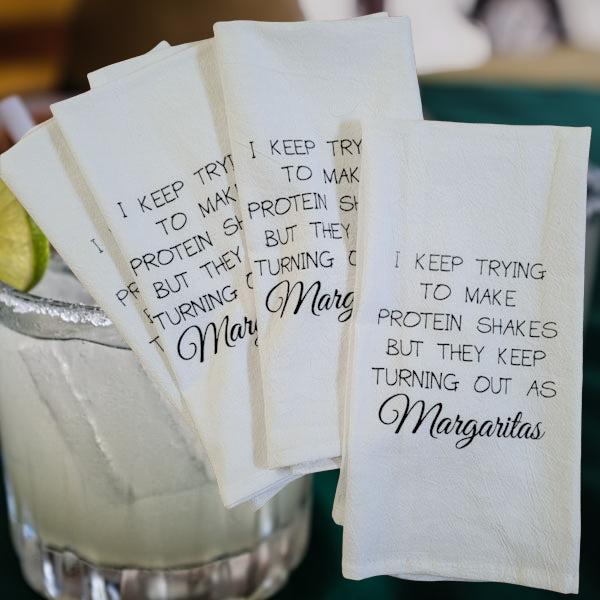 I
I KEEP
TO
PROTEIN
BUT THEY
TURNING
I KEEP
TO
PROTEIN
BUT THEY
TURNING
I KEEP TRYING
TO MAKE
PROTEIN SHAKES
BUT THEY KEEP
TURNING OUT AS
Margaritas